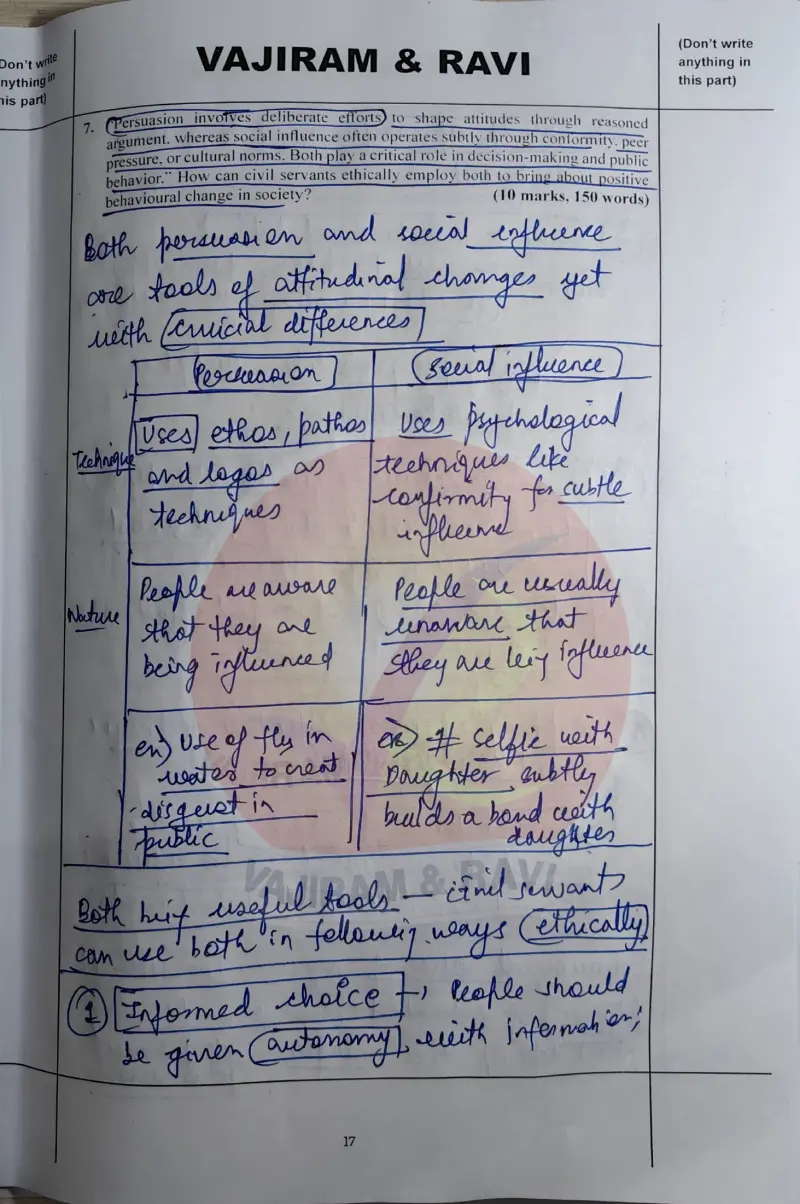 Don't write
nything in
his part)
VAJIRAM & RAVI
(Don't write
anything in
this part)
7. Persuasion involves deliberate efforts to shape attitudes through reasoned
argument, whereas social influence often operates subtly through conformity, peer
pressure, or cultural norms. Both play a critical role in decision-making and public
behavior." How can civil servants ethically employ both to bring about positive
behavioural change in society? (10 marks, 150 words)
Both persuasion and social influence
are tools of attitudinal changes yet
with crucial differences
Persuasion
Social influence
Technique
Uses ethos, pathos
and logos as
techniques
Uses psychological
techniques like
confirmity for subtle
influence
Nature
People are aware
that they are
being influenced
People are usually
unaware that
they are being influence
ex) Use of fly in
water to creat
disgust in
public
ex) # Selfie with
Daughter subtly
builds a bond with
daughter
VAJIRAM & RAVI
Both being useful tools — civil servants
can use both in following ways ethically
1 Informed choice → People should
be given autonomy, with information;
17